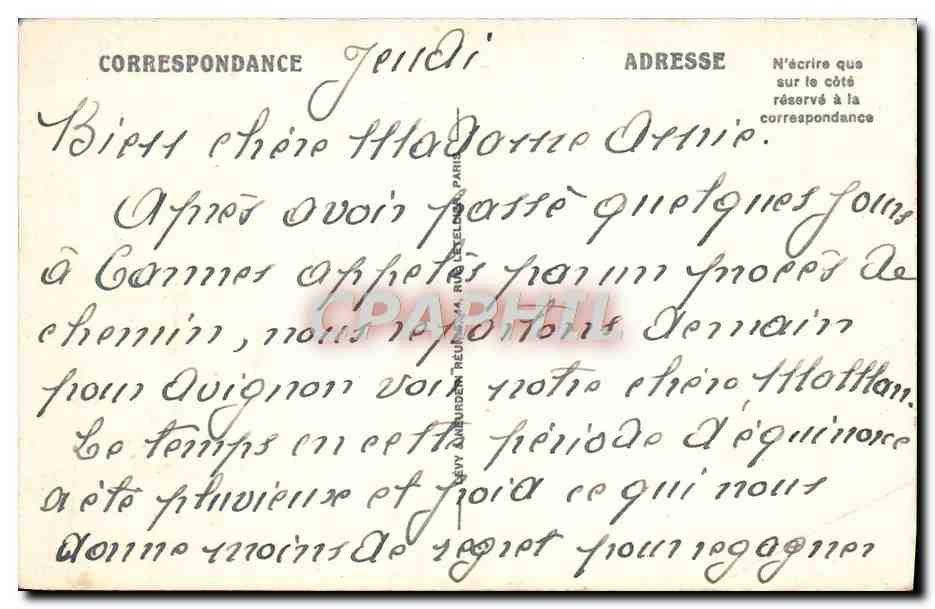 CORRESPONDANCE Jeudi ADRESSE
N'écrire que
sur le côté
réservé à la
correspondance
Bien chère Madame Annie.
Après avoir passé quelques jours
à Cannes appelés par un procès de
chemin, nous repartons demain
pour Avignon voir notre chère Maman.
Le temps en cette période d'équinoxe
a été pluvieux et froid ce qui nous
donne moins de regret pour regagner
LÉVY & NEURDEIN RÉUNIS, 44, RUE LETELLIER, PARIS
CPAPHIL